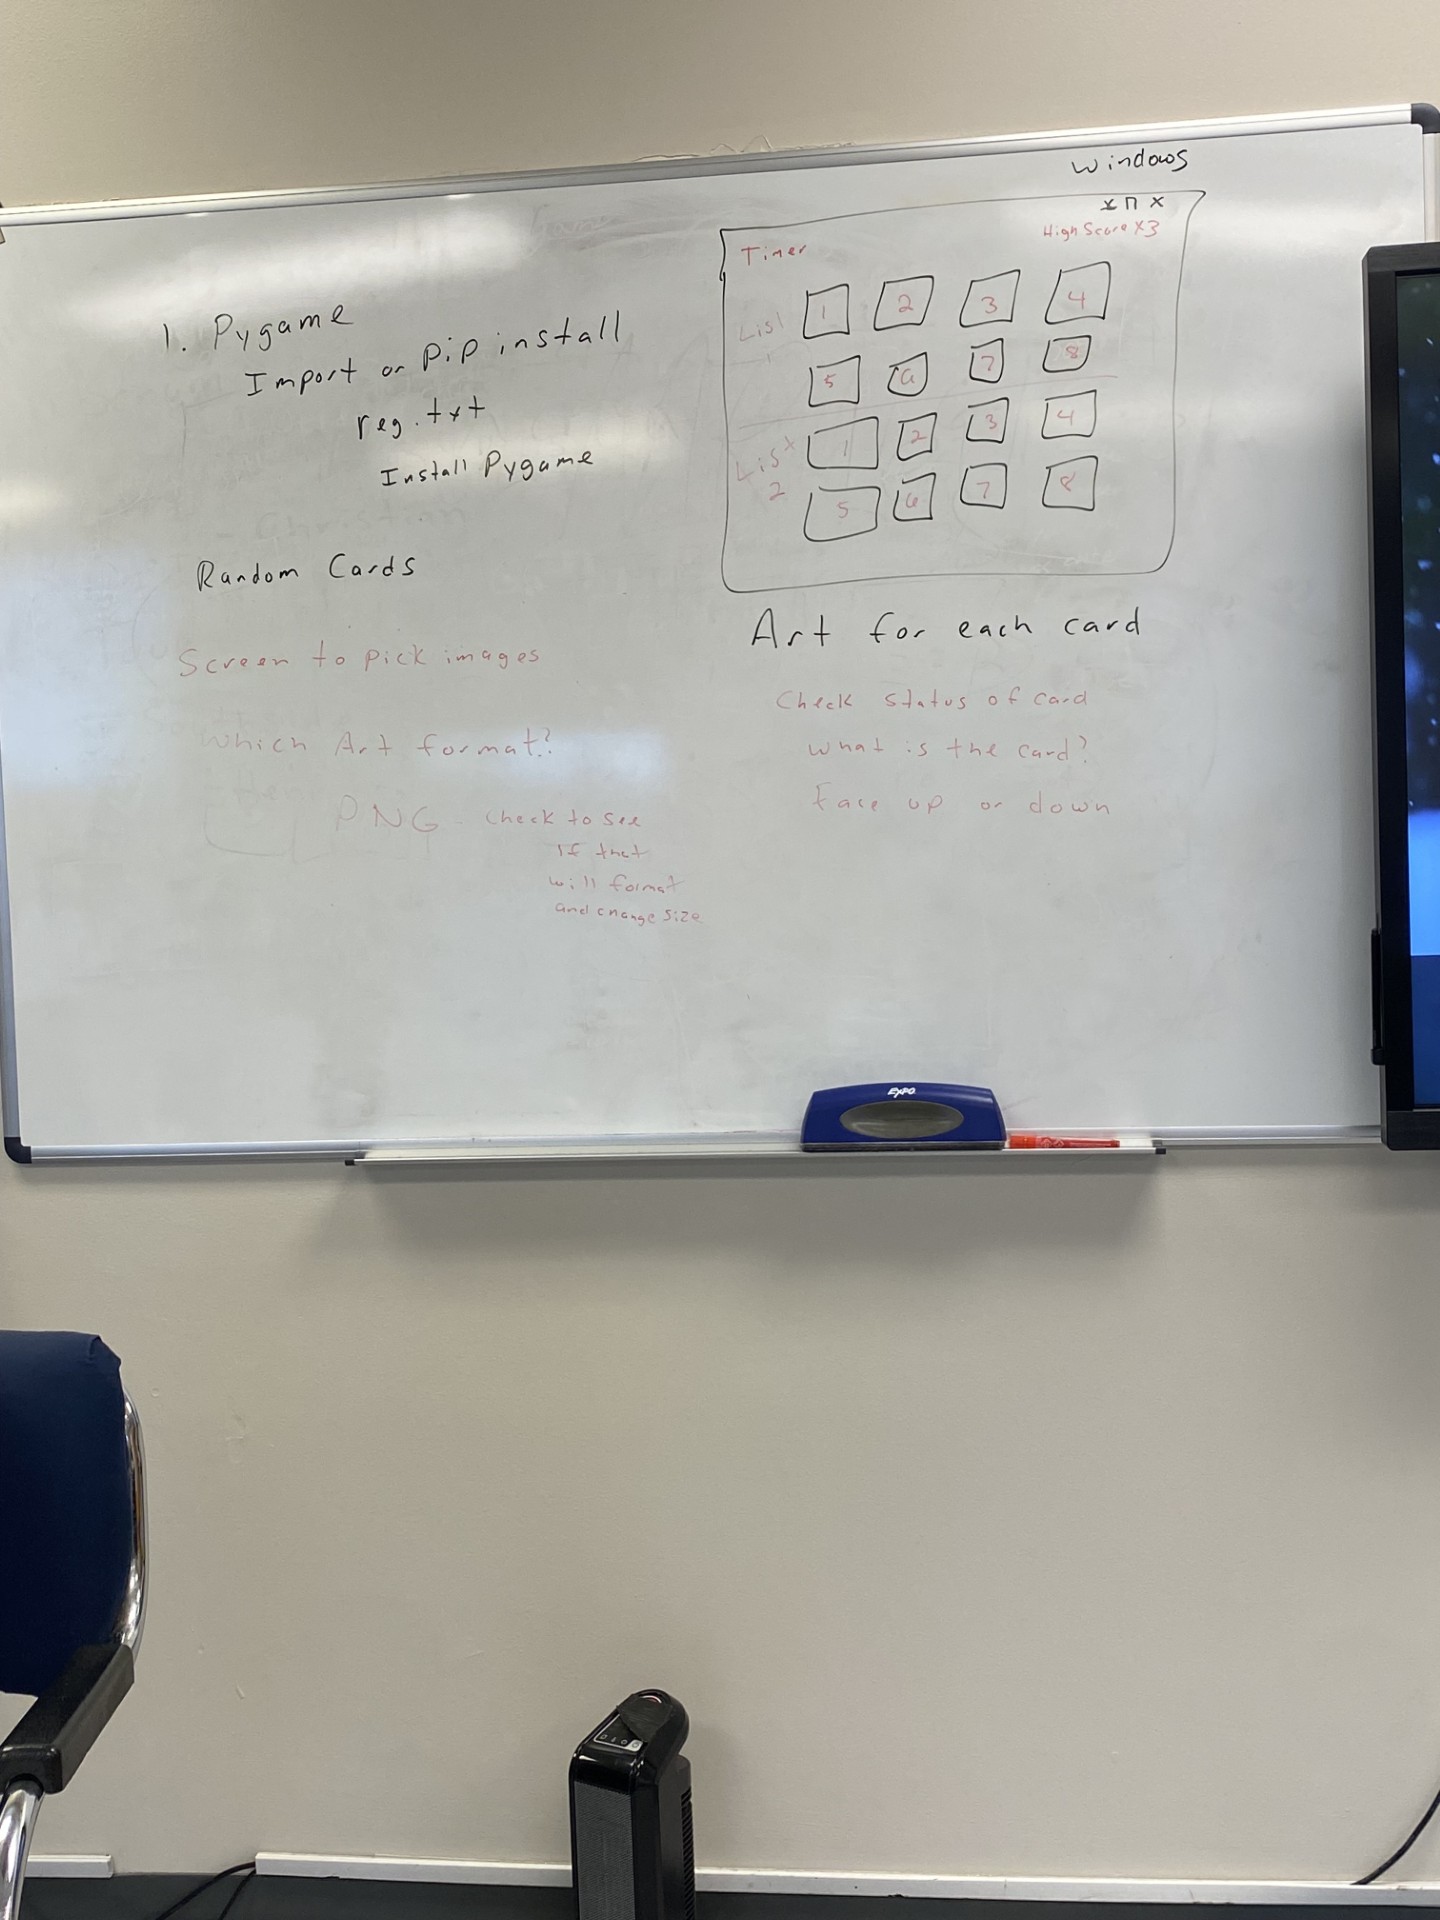 1. Pygame
Import or pip install
reg.txt
Install Pygame
Random Cards
Screen to pick images
Which Art format?
PNG
Check to see
If that
will format
and change size
Windows
x
High Score x3
Timer
List
1 2 3 4
5 6 7 8
List
2
1 2 3 4
5 6 7 8
Art for each card
Check status of card
What is the card?
Face up or down
EXPO